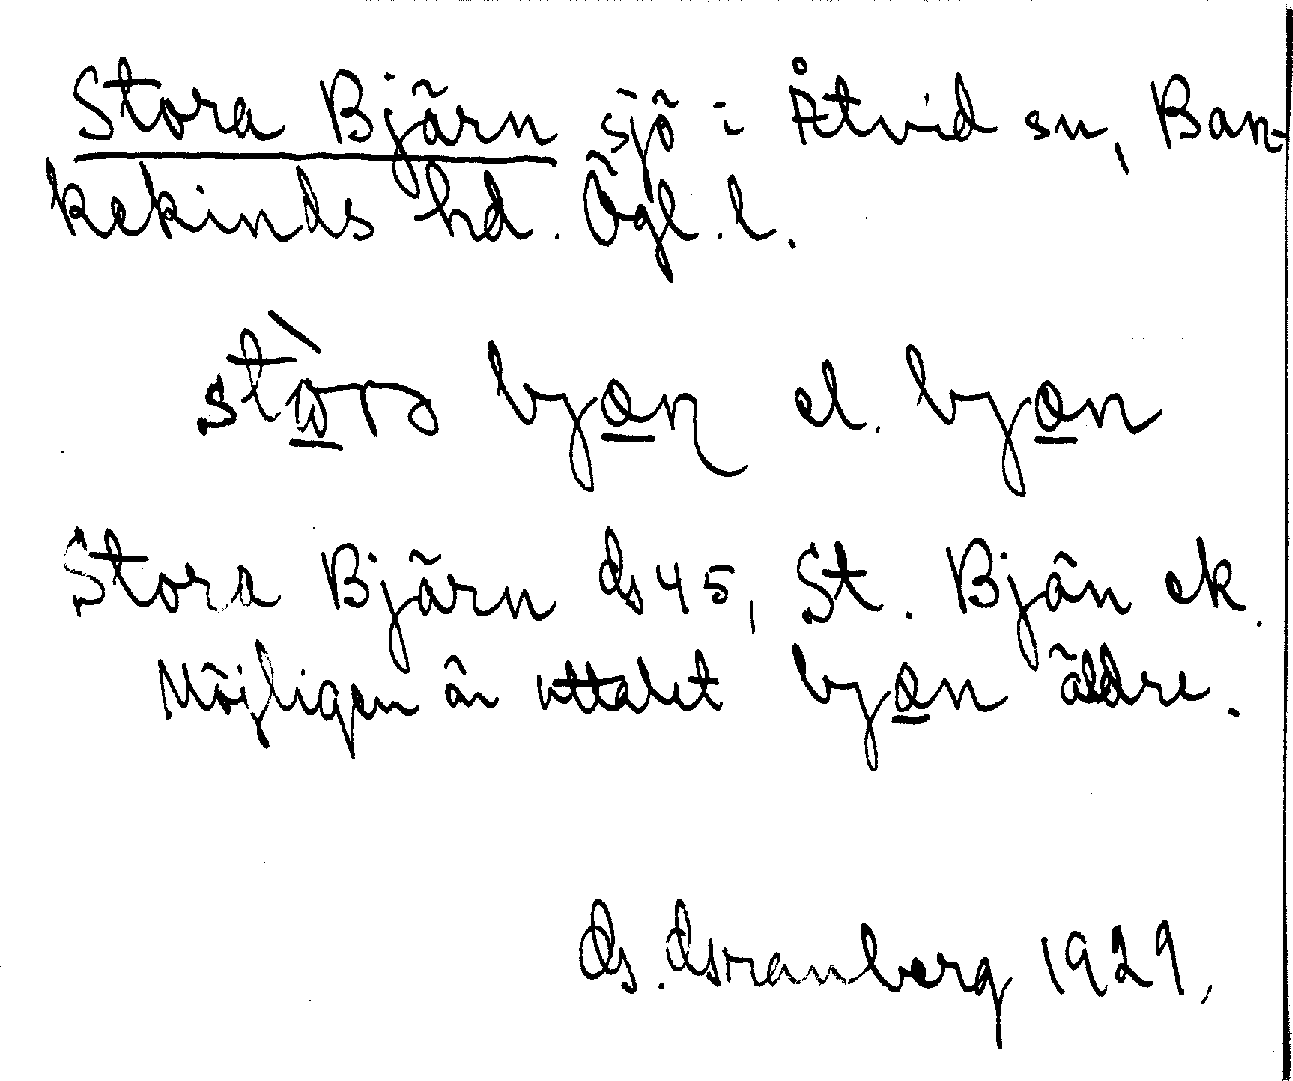 Stora Bjärn sjö i Åtvid sn, Ban-
kekinds hd. Ögl. l.
bjæn el. bjæn
Stora Bjärn Gs 45, St. Bjän ek.
Möjligen är uttalet bjæn äldre.
G. Granberg 1929.